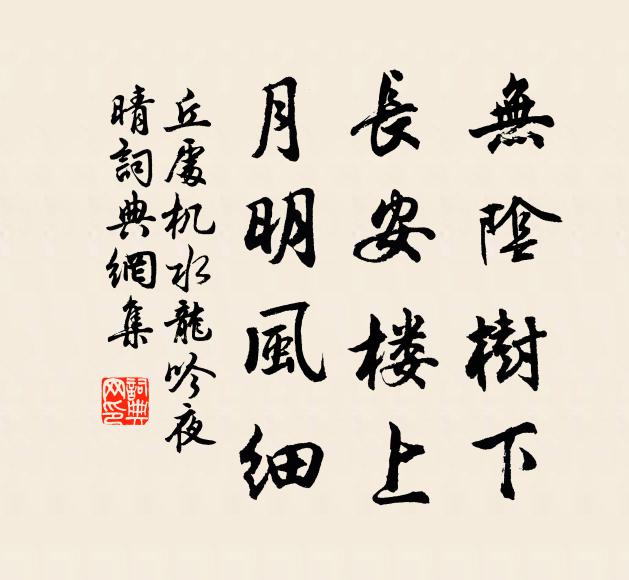 無陰樹下
長安楼上
月明風細
丘處机水龍吟夜
晴詞典網集
詞典网印